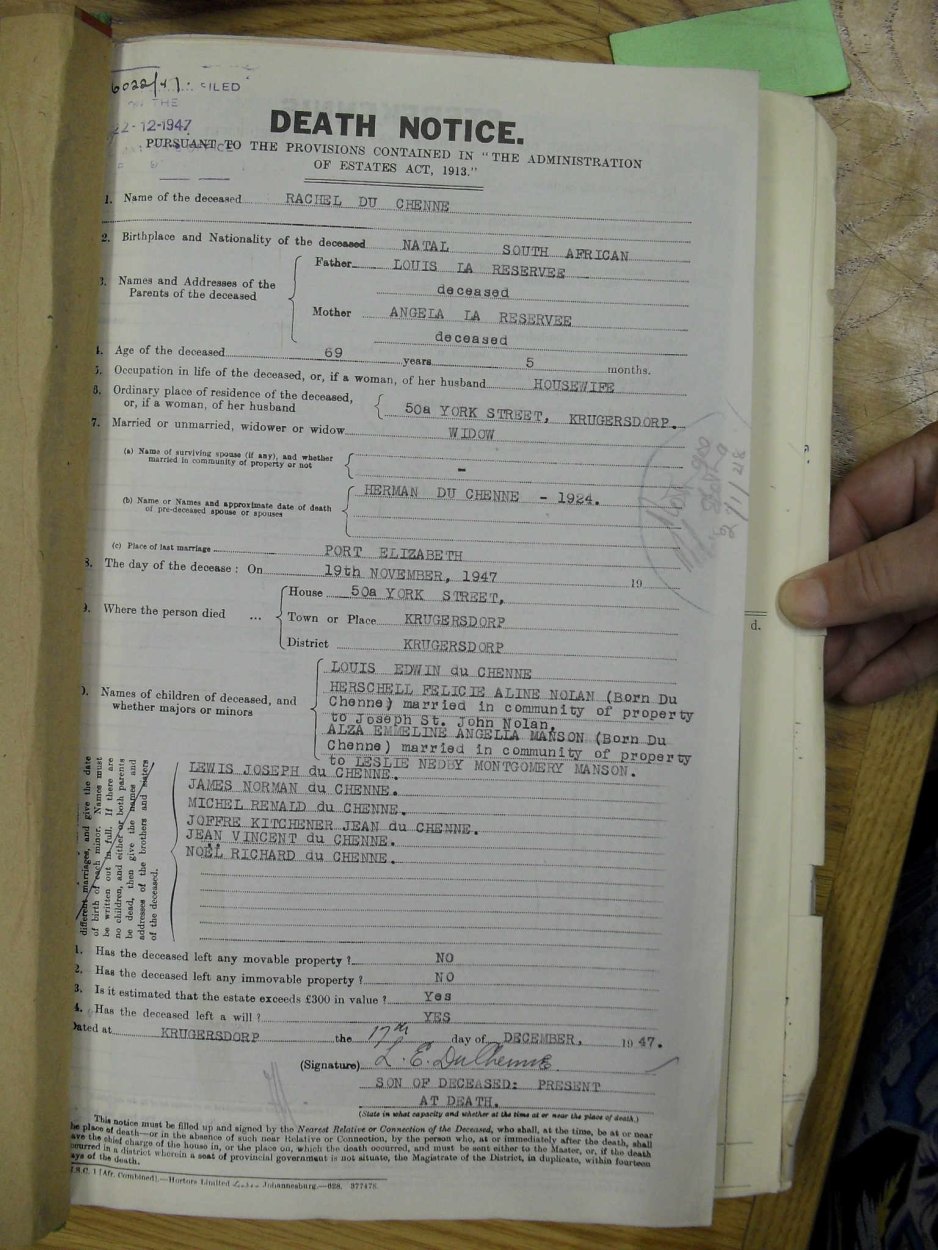 6022/47. FILED
ON THE
22-12-1947
DEATH NOTICE.
PURSUANT TO THE PROVISIONS CONTAINED IN "THE ADMINISTRATION
OF ESTATES ACT, 1913."
1. Name of the deceased RACHEL DU CHENNE
2. Birthplace and Nationality of the deceased NATAL SOUTH AFRICAN
3. Names and Addresses of the Parents of the deceased
Father LOUIS LA RESERVEE
deceased
Mother ANGELA LA RESERVEE
deceased
4. Age of the deceased 69 years 5 months.
5. Occupation in life of the deceased, or, if a woman, of her husband HOUSEWIFE
6. Ordinary place of residence of the deceased,
or, if a woman, of her husband 50a YORK STREET, KRUGERSDORP.
7. Married or unmarried, widower or widow WIDOW
(a) Name of surviving spouse (if any), and whether
married in community of property or not -
(b) Name or Names and approximate date of death
of pre-deceased spouse or spouses HERMAN DU CHENNE - 1924.
(c) Place of last marriage PORT ELIZABETH
8. The day of the decease: On 19th NOVEMBER, 1947 19
9. Where the person died ...
House 50a YORK STREET,
Town or Place KRUGERSDORP
District KRUGERSDORP
d.
). Names of children of deceased, and
whether majors or minors
LOUIS EDWIN du CHENNE
HERSCHELL FELICIE ALINE NOLAN (Born Du
Chenne) married in community of property
to Joseph St. John Nolan,
ALZA EMMELINE ANGELLA MANSON (Born Du
Chenne) married in community of property
to LESLIE NEDBY MONTGOMERY MANSON.
different marriages, and give the date
of birth of each minor. Names must
be written out in full. If there are
no children, and either or both parents
be dead, then give the names and
addresses of the brothers and sisters
of the deceased.
LEWIS JOSEPH du CHENNE.
JAMES NORMAN du CHENNE.
MICHEL RENALD du CHENNE.
JOFFRE KITCHENER JEAN du CHENNE.
JEAN VINCENT du CHENNE.
NOËL RICHARD du CHENNE.
1. Has the deceased left any movable property? NO
2. Has the deceased left any immovable property? NO
3. Is it estimated that the estate exceeds £300 in value? Yes
4. Has the deceased left a will? YES
Dated at KRUGERSDORP the 17th day of DECEMBER, 1947.
(Signature) L. E. DuChenne
SON OF DECEASED: PRESENT
AT DEATH.
(State in what capacity and whether at the time at or near the place of death.)
This notice must be filled up and signed by the Nearest Relative or Connection of the Deceased, who shall, at the time, be at or near
he place of death—or in the absence of such near Relative or Connection, by the person who, at or immediately after the death, shall
ave the chief charge of the house in, or the place on, which the death occurred, and must be sent either to the Master, or, if the death
ccurred in a district wherein a seat of provincial government is not situate, the Magistrate of the District, in duplicate, within fourteen
ays of the death.
(Afr. Combined).—Hortors Limited Johannesburg.—628. 377478.